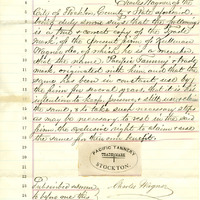 Charles Wagner, of the
City of Stockton, County of San Joaquin,
being duly sworn says that the following
is a true & correct copy of the Trade
Mark of the firm of Kullman
Wagner & Co, of which he is a member
that the name "Pacific Tannery" & trade
mark originated with him and that the
same has been in constant use by
the firm for several years, that it is the
intention to keep, possess, & still use
the same, & to take such necessary steps
as may be necessary to vest in the said
firm the exclusive right to claim & use
the same for their own benefit.
PACIFIC TANNERY
TRADE MARK
STOCKTON.
Subscribed & sworn
to before me this
Charles Wagner